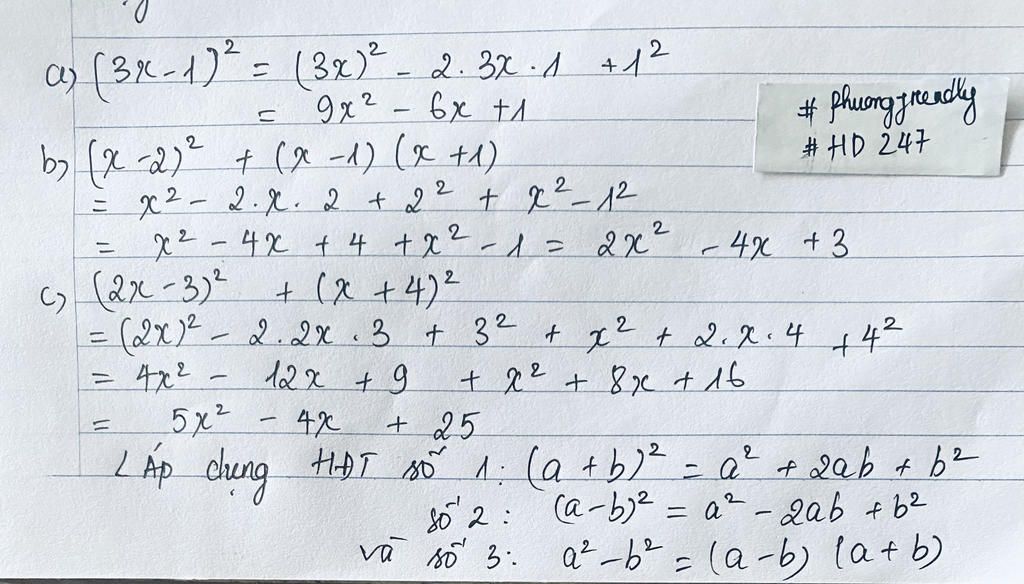 a) (3x-1)² = (3x)² - 2.3x.1 +1²
= 9x² - 6x +1
# phuongfriendly
# HD 247
b) (x-2)² + (x-1) (x+1)
= x² - 2.x.2 + 2² + x² - 1²
= x² - 4x + 4 + x² - 1 = 2x² - 4x + 3
c) (2x-3)² + (x+4)²
= (2x)² - 2.2x.3 + 3² + x² + 2.x.4 + 4²
= 4x² - 12x + 9 + x² + 8x + 16
= 5x² - 4x + 25
Áp dụng HĐT số 1: (a+b)² = a² + 2ab + b²
số 2: (a-b)² = a² - 2ab + b²
và số 3: a² - b² = (a-b) (a+b)